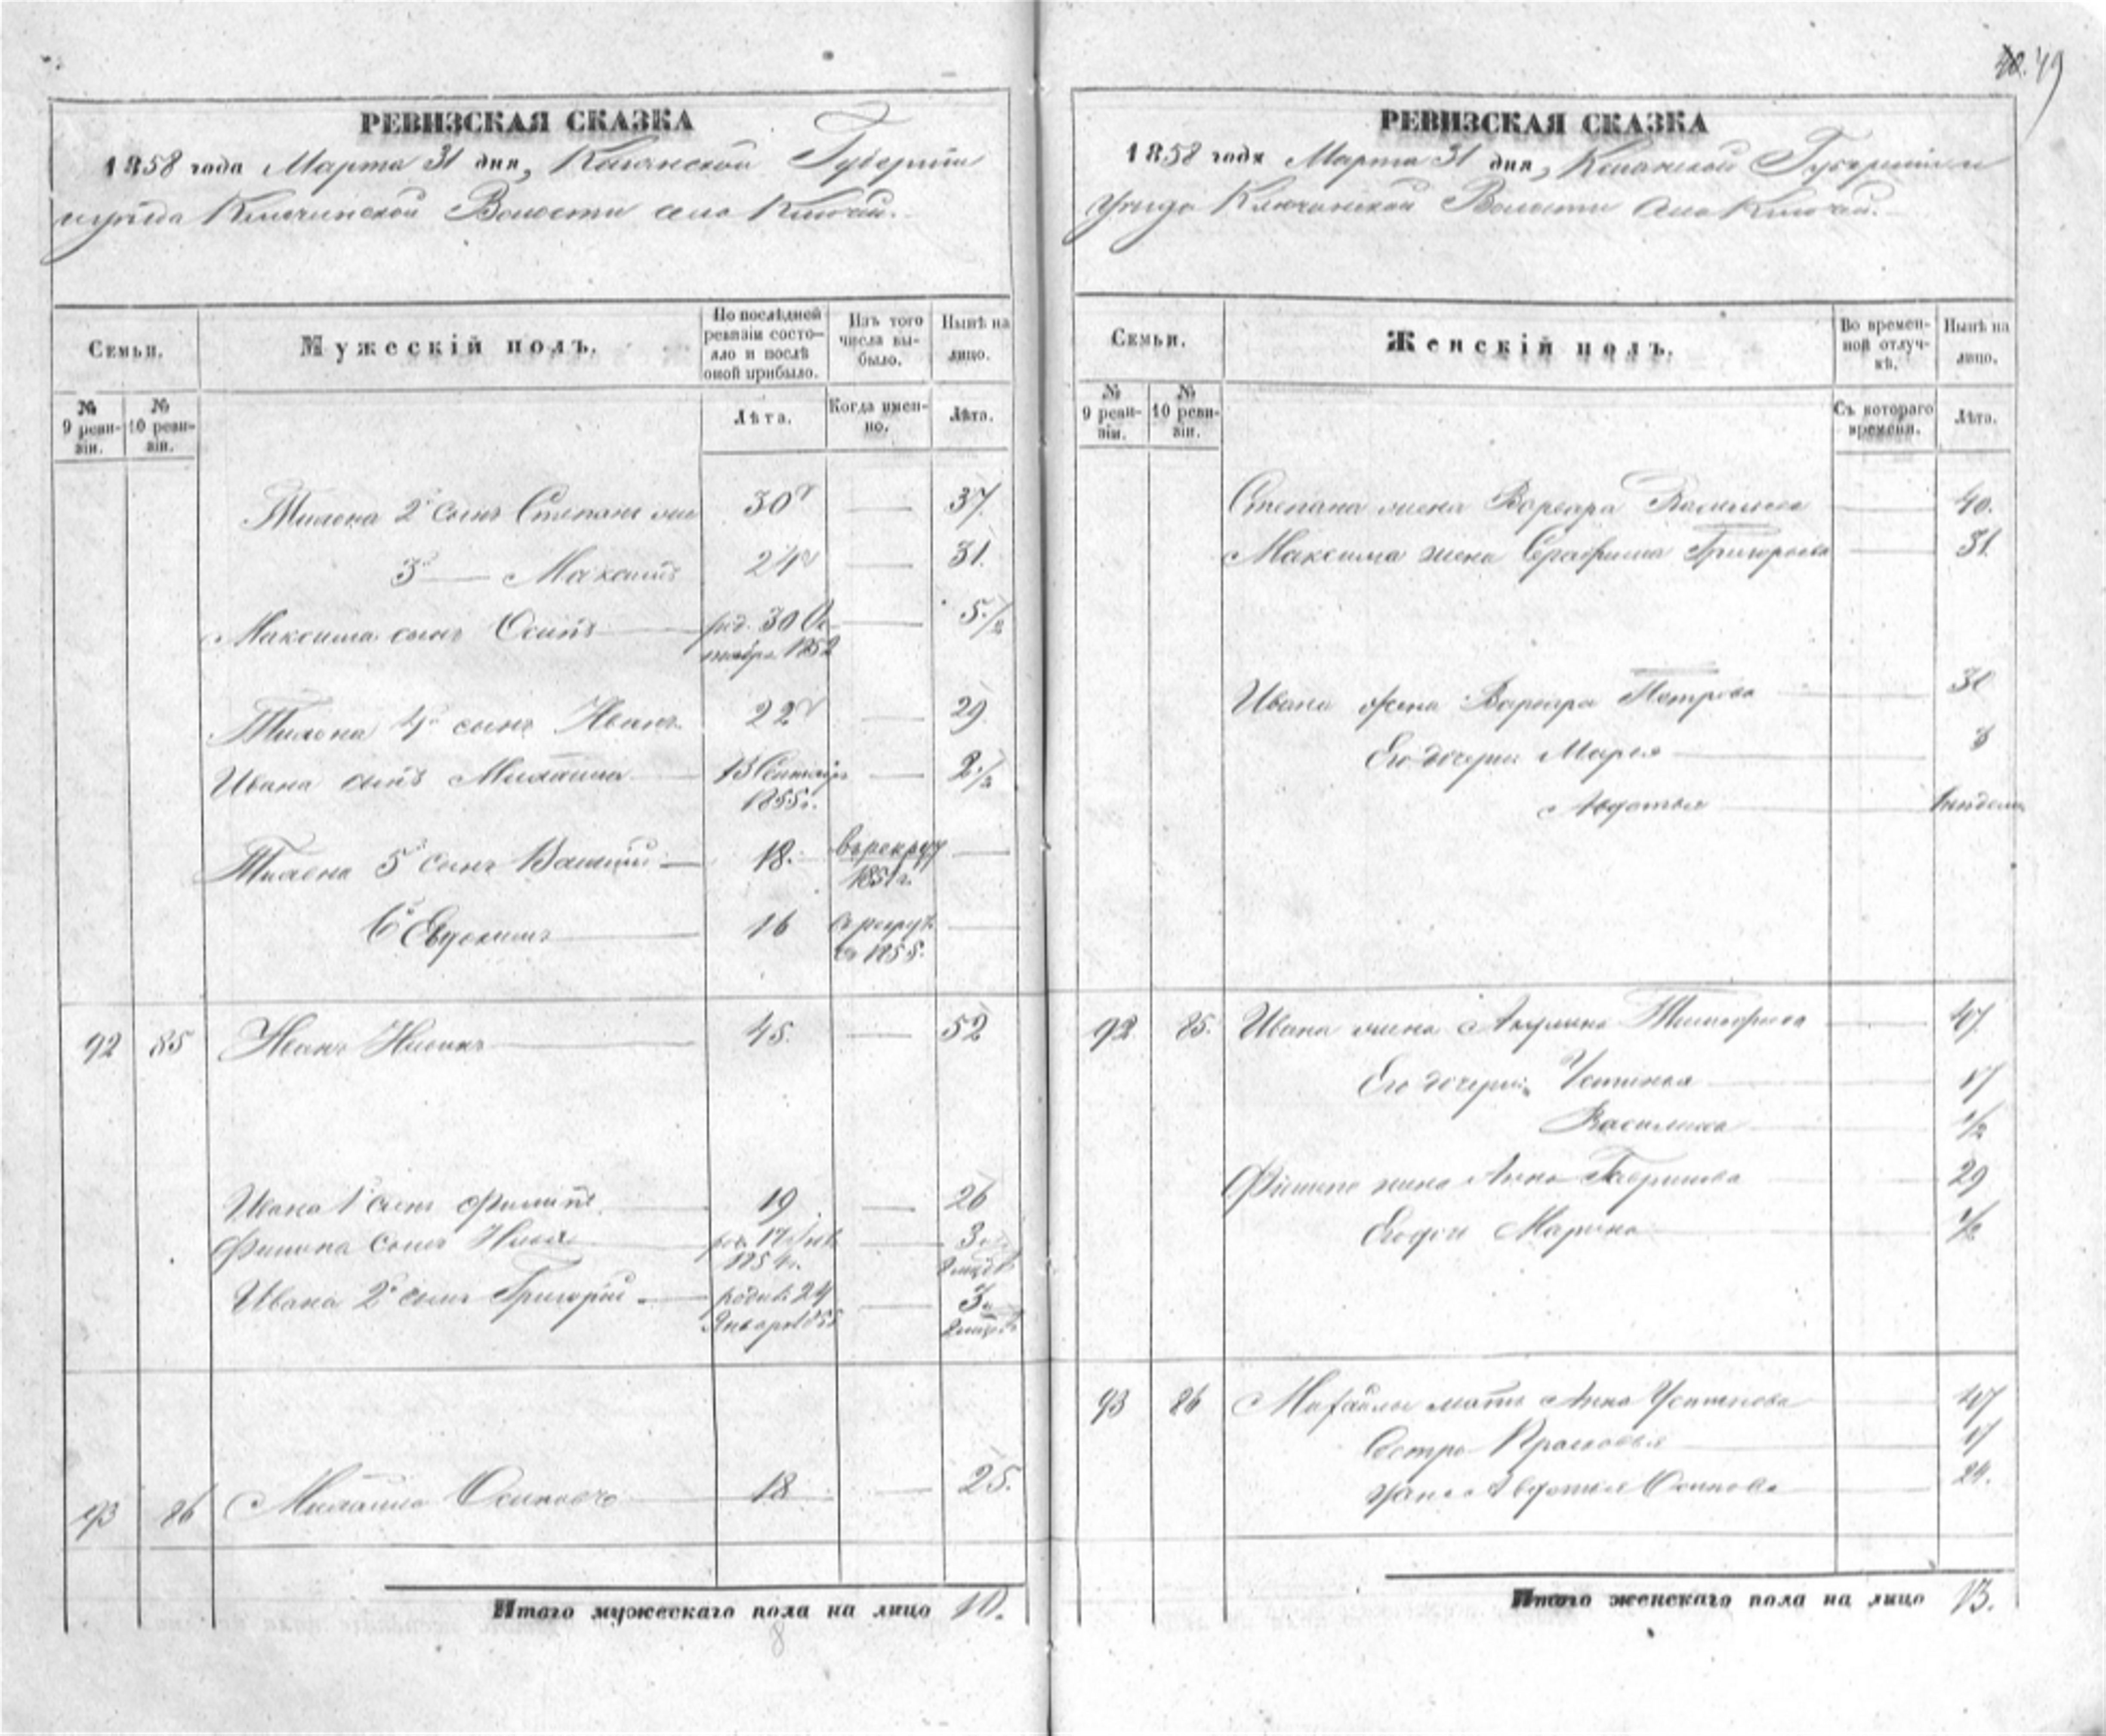 49
РЕВИЗСКАЯ СКАЗКА
1858 года Марта 31 дня, Казанской Губернии
и уѣзда Ключинской Волости село Ключи.
Семьи.
Мужескій полъ.
По послѣдней ревизіи состояло и послѣ оной прибыло.
Изъ того числа выбыло.
Нынѣ на лицо.
№ 9 ревизіи.
№ 10 ревизіи.
Лѣта.
Когда именно.
Лѣта.
2й сынъ Степанъ 30 37.
3й — Максимъ 24 31.
Максима сынъ Осипъ род. 30 Октября 1852 5 1/2
4й сынъ Иванъ 22 29
Ивана сынъ Михаила 13 Сентября 1855г. 2 1/2
5й сынъ Василій 18. въ рекруты 1851г.
6й Евдокимъ 16 въ рекруты въ 1855.
92 85 Иванъ 45. 52
Ивана 1й сынъ Филипъ 19 26
Филипа сынъ род. 17 1854г. 3
Ивана 2й сынъ Григорій родив. 24 Января 3 и 2 мѣс.
93 86 Михайло Осиповъ 18 25.
Итого мужескаго пола на лицо 10.
8
РЕВИЗСКАЯ СКАЗКА
1858 года Марта 31 дня, Казанской Губерніи и
уѣзда Ключинской Волости село Ключи.
Семьи.
Женскій полъ.
Во временной отлучкѣ.
Нынѣ на лицо.
№ 9 ревизіи.
№ 10 ревизіи.
Съ котораго времени.
Лѣта.
Степана жена Варвара Васильева 40.
Максима жена Серафима Григорьева 31
Ивана жена Варвара Петрова 30
Его дочери Марья 8
Авдотья 1 недели
92 85. Ивана жена Акулина Тимофеева 47.
Его дочери: Устинья 17
Василиса 1/2
Филипа жена Анна Гаврилова 29
Его дочь Марина 1/2
93 86 Михайлы мать Анна Устинова 47
Сестра Прасковья 17
жена Авдотья Осипова 24.
Итого женскаго пола на лицо 13.